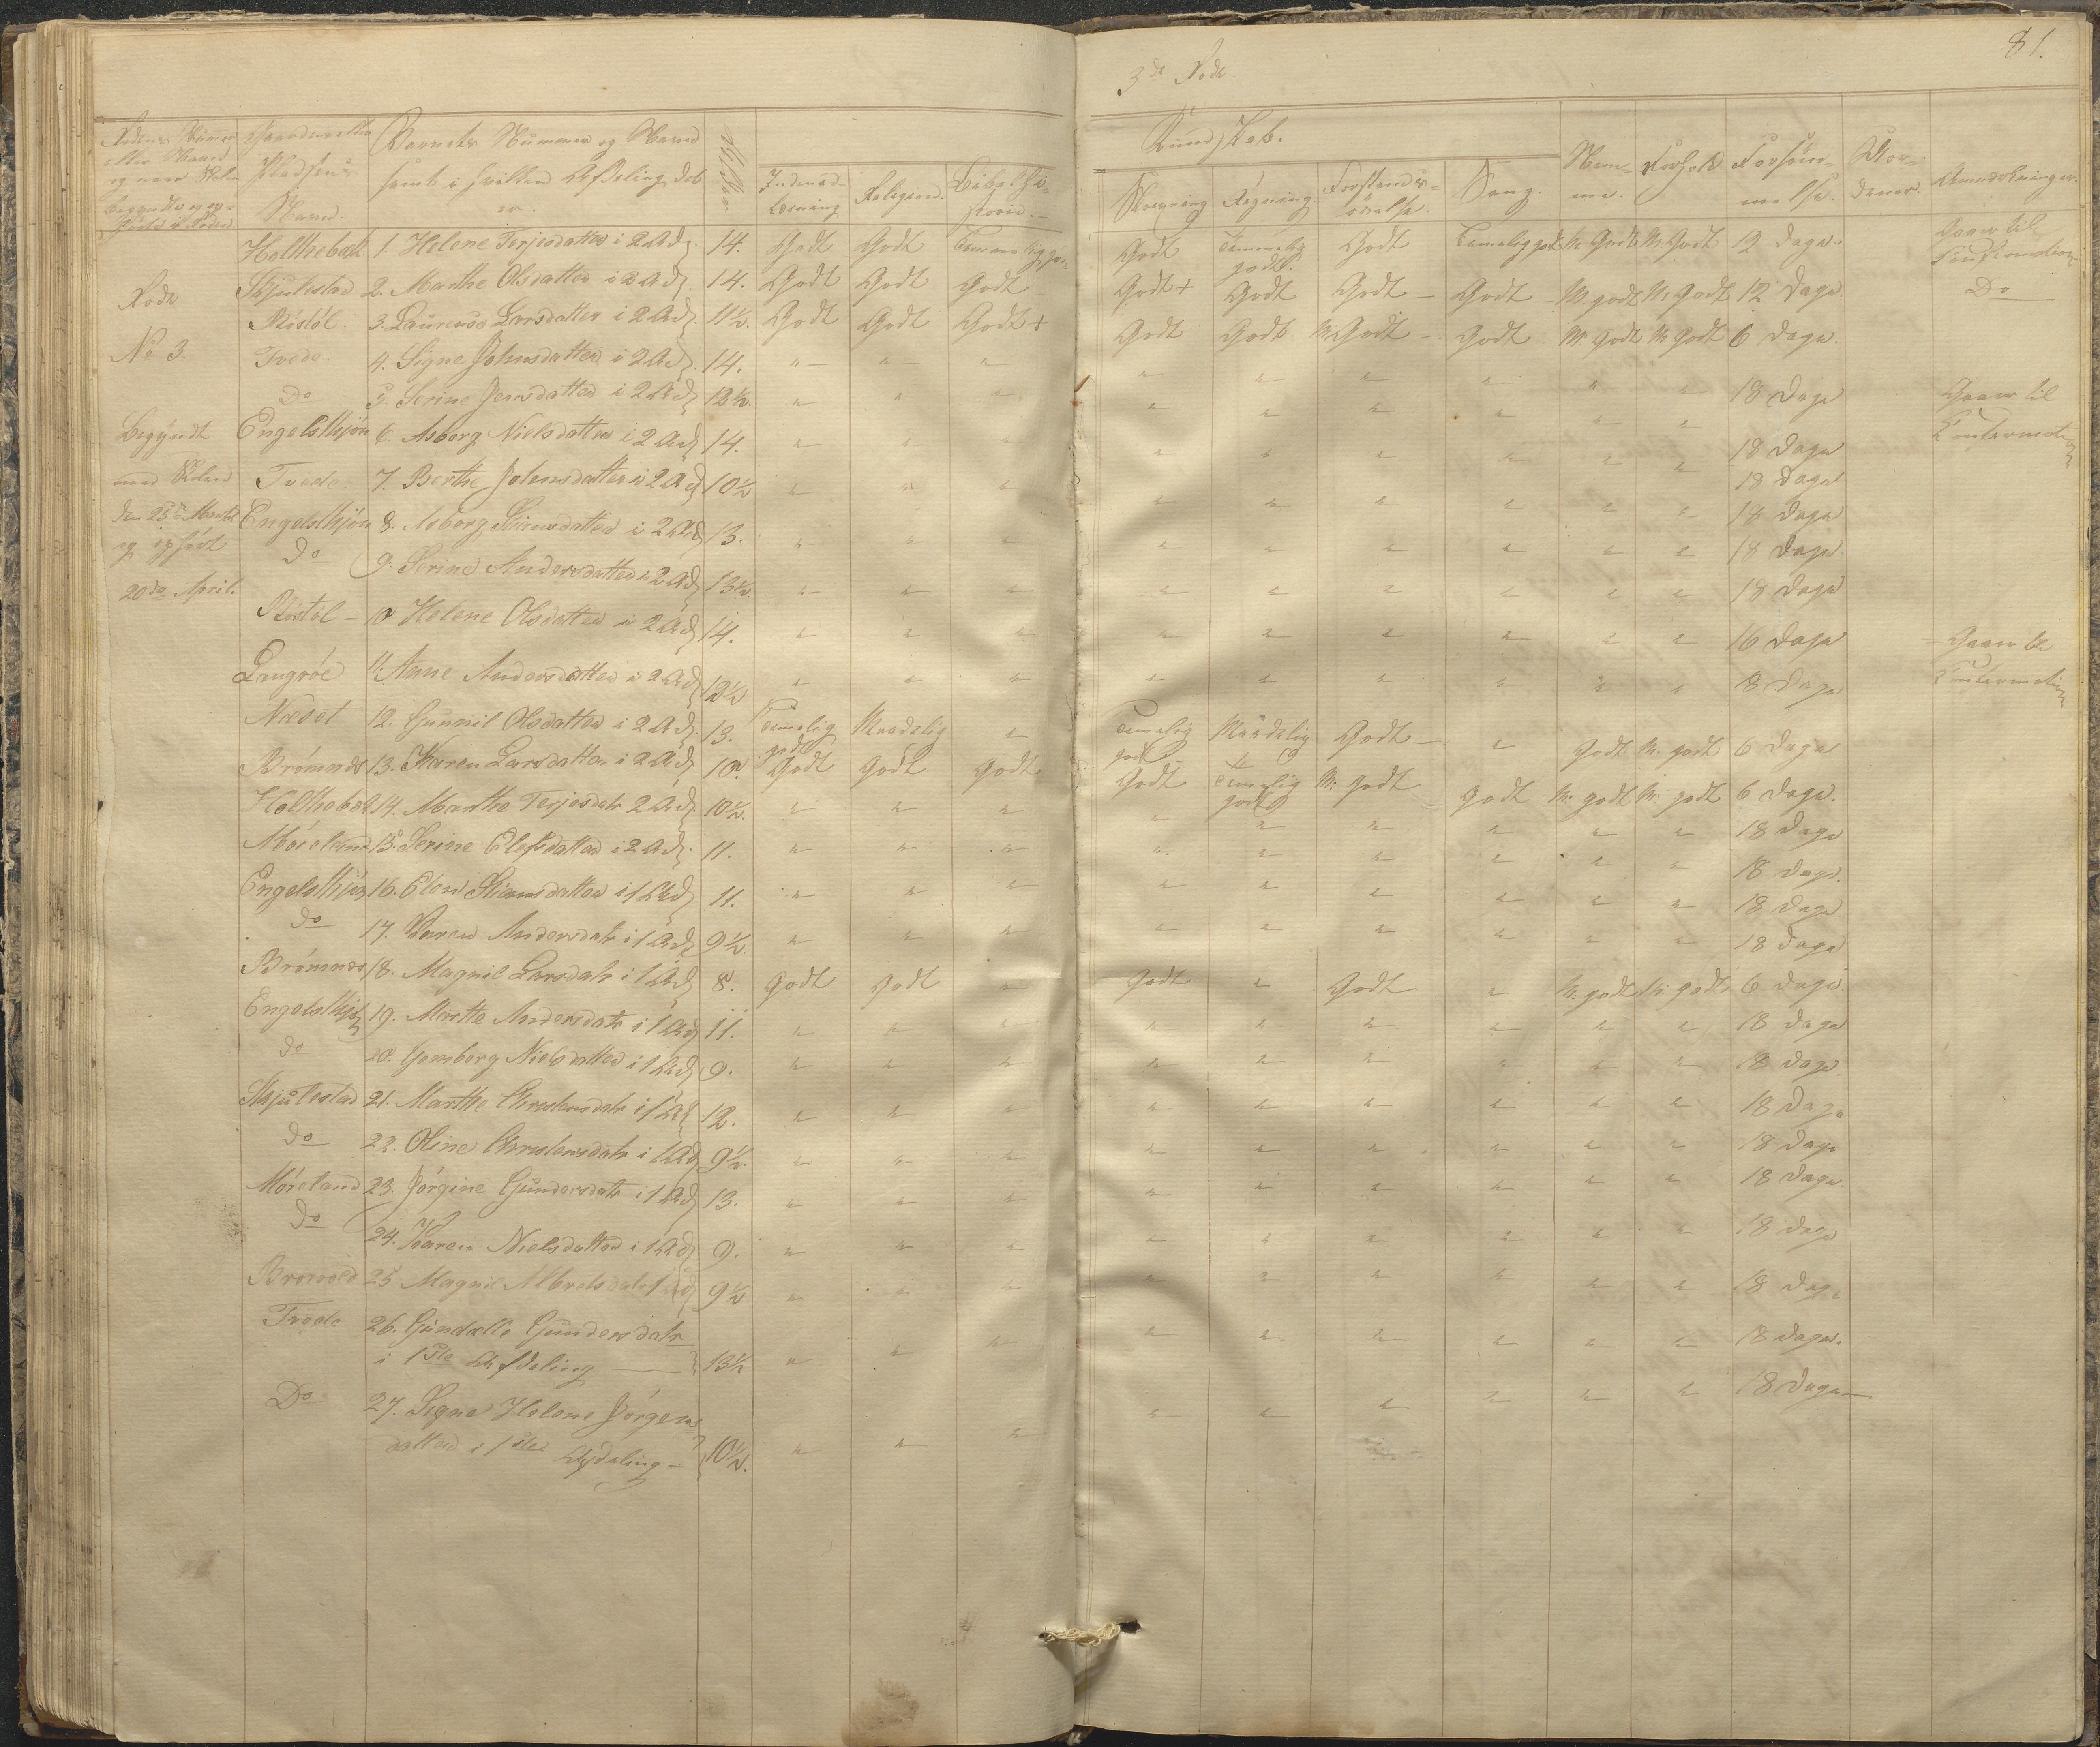 81.
3de Rode.
Rodens Numer eller Navn og naar Skolen begyndte og ophørte i Roden
Gaardens eller Pladsens Navn.
Barnets Nummer og Navn samt i hvilken Afdeling det er.
Alder
Indenad-Læsning
Religion.
Bibelhistorie.
Kundskab.
Skrivning
Regning.
Forstands-øvelse.
Sang.
Nemme.
Forhold
Forsømmelse.
Anmærkninger.
Rode
No 3.
Begyndt
med Skolen
den 25de Martz
og ophørt
20de April.
Holthebæk 1. Helene Terjesdatter i 2 Afd. 14. Godt Godt Temmelig godt Godt Temmelig godt. Godt Temelig godt M. Godt M. Godt 12 Dage Gaaer til Confirmation
Skjulestad 2. Marthe Olsdatter i 2 Afd. 14. Godt Godt Godt Godt + Godt Godt Godt M. godt M. Godt 12 Dage Do
Röstöl. 3. Laurense Larsdatter i 2 Afd. 11½. Godt Godt Godt + Godt Godt M. Godt Godt M. godt M. godt 6 dage.
Tvede. 4. Signe Johnsdatter i 2 Afd. 14. " " " " " " " " " 18 Dage Gaaer til Confirmation
Do 5. Serine Jensdatter i 2 Afd. 12½. " " " " " " " " " 18 Dage
Engelskjön 6. Asborg Nielsdatter i 2 Afd. 14. " " " " " " " " " 18 Dage
Tvede 7. Berthe Johnsdatter i 2 Afd. 10½ " " " " " " " " " 18 Dage
Engelskjön 8. Asborg Stiansdatter i 2 Afd. 13. " " " " " " " " " 18 Dage
Do 9. Serine Andersdatter i 2 Afd. 13½. " " " " " " " " " 18 Dage
Röstöl 10 Helene Olsdatter i 2 Afd. 14. " " " " " " " " " 16 Dage Gaaer til Confirmation
Langröe 11. Anne Andersdatter i 2 Afd. 12½ " " " " " " " " " 18 Dage
Næset 12. Gunnil Olsdatter i 2 Afd. 13. Temelig godt Maadelig " Temelig godt Maadelig Godt " Godt M. godt 6 Dage
Brömnes 13. Karen Larsdatter i 2 Afd. 10. Godt Godt Godt Godt Temelig godt M. godt godt M. godt M. godt 6 Dage.
Holthebæk 14. Marthe Terjesdatr 2 Afd. 10½. " " " " " " " " " 18 Dage
Möreland 15. Serine Olefsdatter i 2 Afd. 11. " " " " " " " " " 18 Dage.
Engelskjön 16. Elen Stiansdatter i 1 Afd. 11. " " " " " " " " " 18 Dage
do 17. Karen Andersdatr i 1 Afd. 9½. " " " " " " " " " 18 Dage
Brömnes 18. Magnil Larsdatr i 1 Afd. 8. Godt godt " Godt " Godt " M. godt M. godt 6 Dage.
Engelskjön 19. Marthe Andersdatr i 1 Afd. 11. " " " " " " " " " 18 Dage
do 20. Gomborg Nielsdatter i 1 Afd. 9. " " " " " " " " " 18 Dage
Skjulestad 21. Marthe Christensdatr i 1 Afd. 12. " " " " " " " " " 18 Dage
do 22. Oline Christensdatr i 1 Afd. 9½. " " " " " " " " " 18 Dage
Möreland 23. Jörgine Gundersdatr i 1 Afd. 13. " " " " " " " " " 18 Dage.
Do 24. Karen Nielsdatter i 1 Afd. 9. " " " " " " " " " 18 Dage
25 Magnil 1 Afd. 9½ " " " " " " " " " 18 Dage
Tvede 26. Gundelle Gundersdatr
i 1ste Afdeling 13½ " " " " " " " " " 18 Dage.
Do 27. Signe Helene Jörgens
datter i 1ste Afdeling 10½. " " " " " " " " " 18 Dage